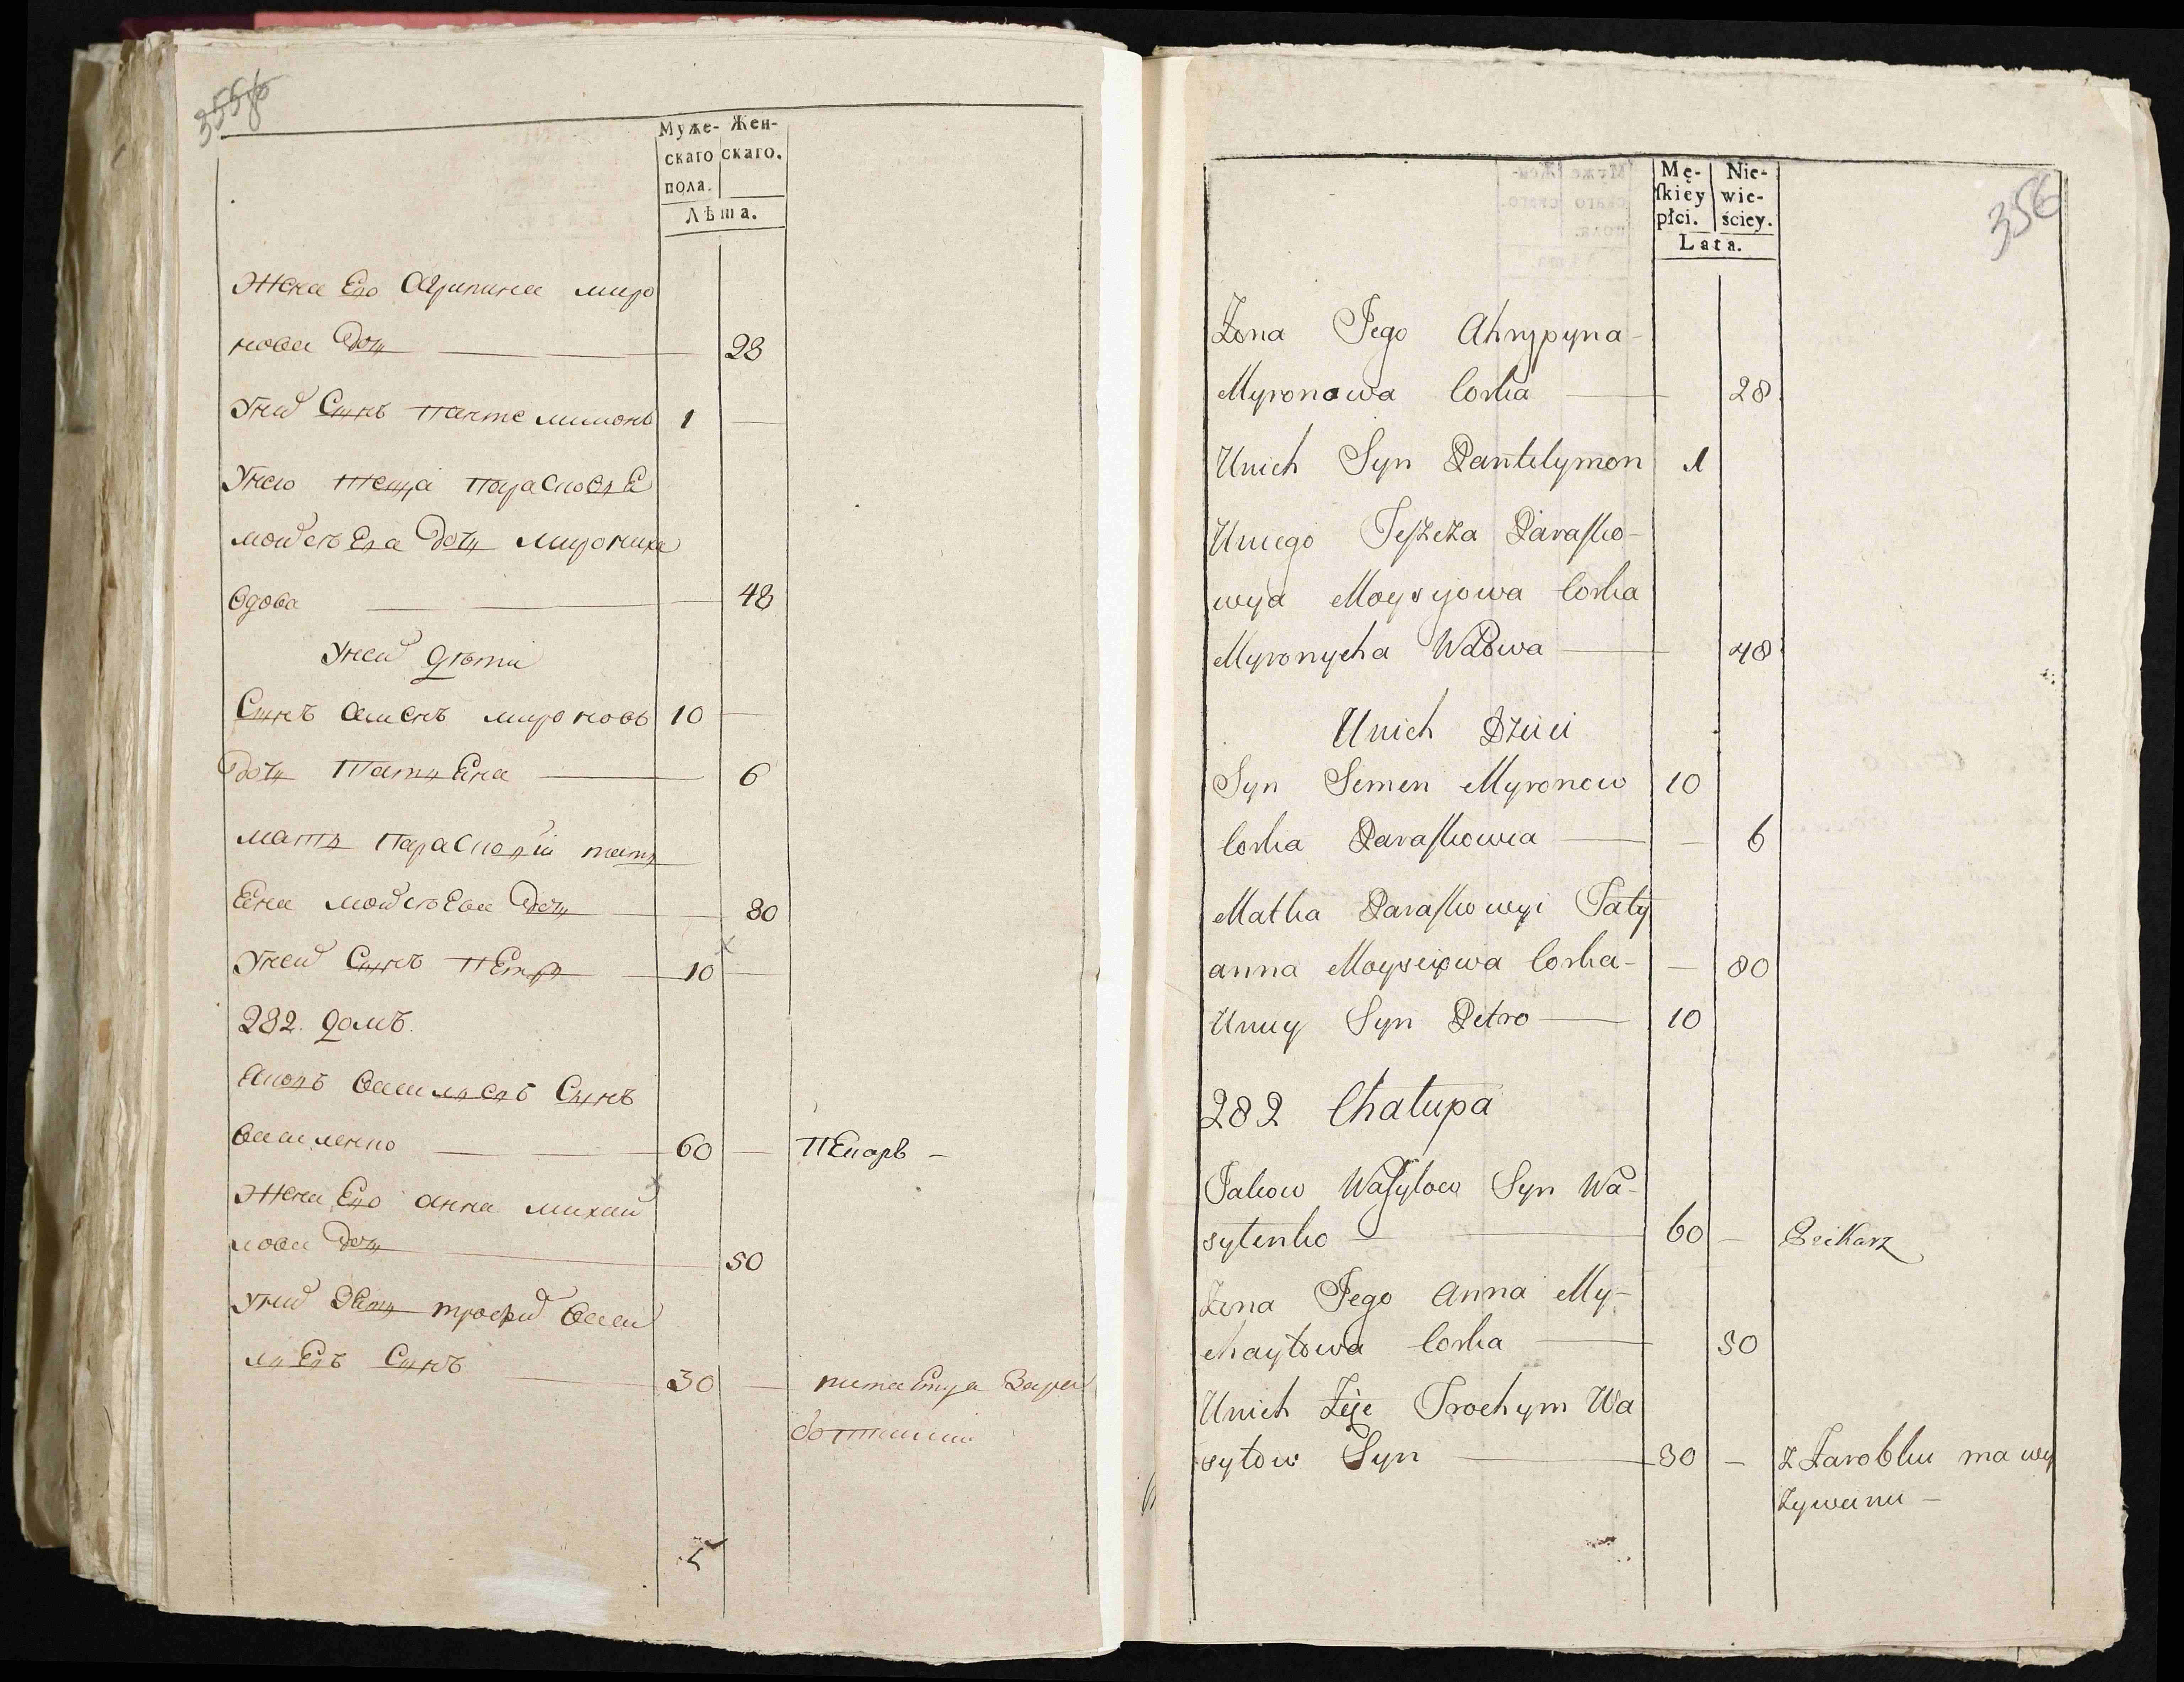 355об
Муже- Жен-
скаго скаго.
пола.
Лѣта.
Жена Его Агрипина миро
нова Дочь 28
Уних Сынъ Пантелимонъ 1
Унего Теща Парасковья
мойсѣева Дочь мирониха
вдова 48
Уней дѣти
Сынъ семенъ мироновъ 10
Дочь Татьяна 6
мать Парасковьи тать
яна мойсѣева Дочь 80
Уней Сынъ Петръ 10
282. домъ.
Яковъ васильевъ Сынъ
василенко 60 Пекарь
Жена Его анна михай
лова Дочь 50
Уних трофим васи
льевъ Сынъ 30 питается Зара
ботками
356
Mę- Nie-
skiey wie-
płci. ściey.
Lata.
Żona Jego Ahrypyna
Myronowa Corka 28
Unich Syn Pantelymon 1
Uniego Teszcza Parasko-
wya Moysyjowa Corka
Myronycha Wdowa 48
Unich Dzieci
Syn Semen Myronow 10
Corka Paraskowia 6
Matka Paraskowyi Taty
anna Moysejowa Corka 80
Uniey Syn Petro 10
282 Chałupa
Jakow Wasyłow Syn Wa-
sylenko 60 Peikarz
Żona Jego Anna My-
chayłowa Corka 50
Unich Żyje Trochym Wa
syłow Syn 30 z Zarobku ma wy
żywieniu